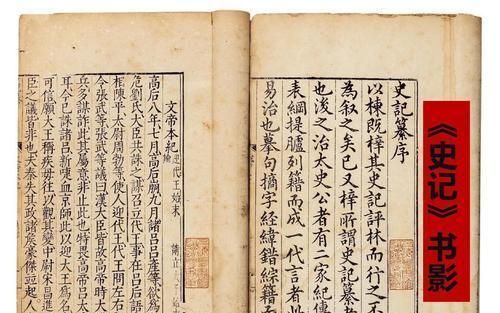 《史记》书影
史記纂序
以棟既梓其史記評林而行之不
為叙之矣已又梓所謂史記纂者
也後之治太史公者有二家紀傳
表綱提臚列籍而成一代言者
易治也摹句擿字經緯錯綜籍而
文帝本紀
迎代王始末
高后八年七月高后崩九月諸呂呂產等欲為
危劉氏大臣共誅之謀召立代王事在呂后語
相陳平太尉周勃等使人迎代王代王問左右
令張武等張武等議曰漢大臣皆故高帝時大
兵多謀詐此其屬意非止此也特畏高帝呂太
耳今已誅諸呂新啑血京師此以迎大王為名
可信願大王稱病毋往以觀其變中尉宋昌進
臣之議皆非也夫秦失其政諸侯豪傑並起人